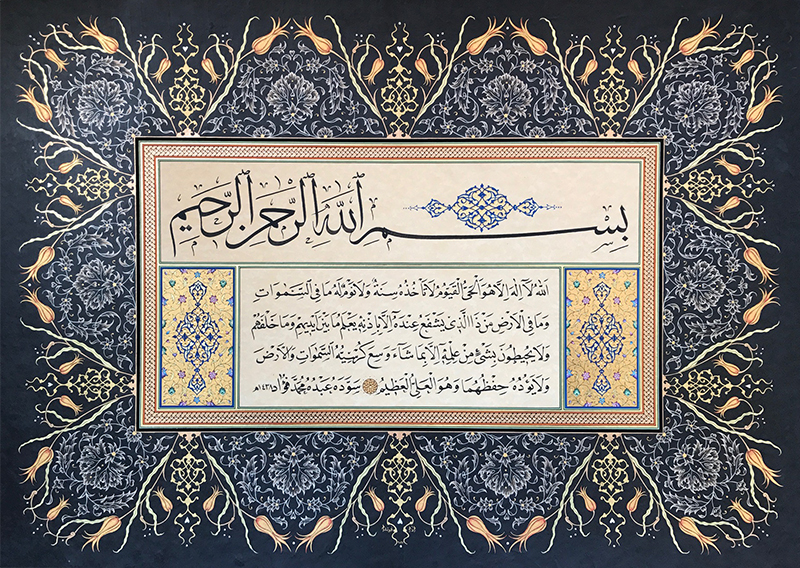 بِسْمِ اللهِ الرَّحْمٰنِ الرَّحِيمِ
اَللهُ لَا اِلٰهَ اِلَّا هُوَ الْحَيُّ الْقَيُّومُ لَا تَأْخُذُهُ سِنَةٌ وَلَا نَوْمٌ لَهُ مَا فِي السَّمٰوَاتِ
وَمَا فِي الْاَرْضِ مَنْ ذَا الَّذِي يَشْفَعُ عِنْدَهُ اِلَّا بِاِذْنِهِ يَعْلَمُ مَا بَيْنَ اَيْدِيهِمْ وَمَا خَلْفَهُمْ
وَلَا يُحِيطُونَ بِشَيْءٍ مِنْ عِلْمِهِ اِلَّا بِمَا شَاءَ وَسِعَ كُرْسِيُّهُ السَّمٰوَاتِ وَالْاَرْضَ
وَلَا يَؤُدُهُ حِفْظُهُمَا وَهُوَ الْعَلِيُّ الْعَظِيمُ سوّده عبده محمد